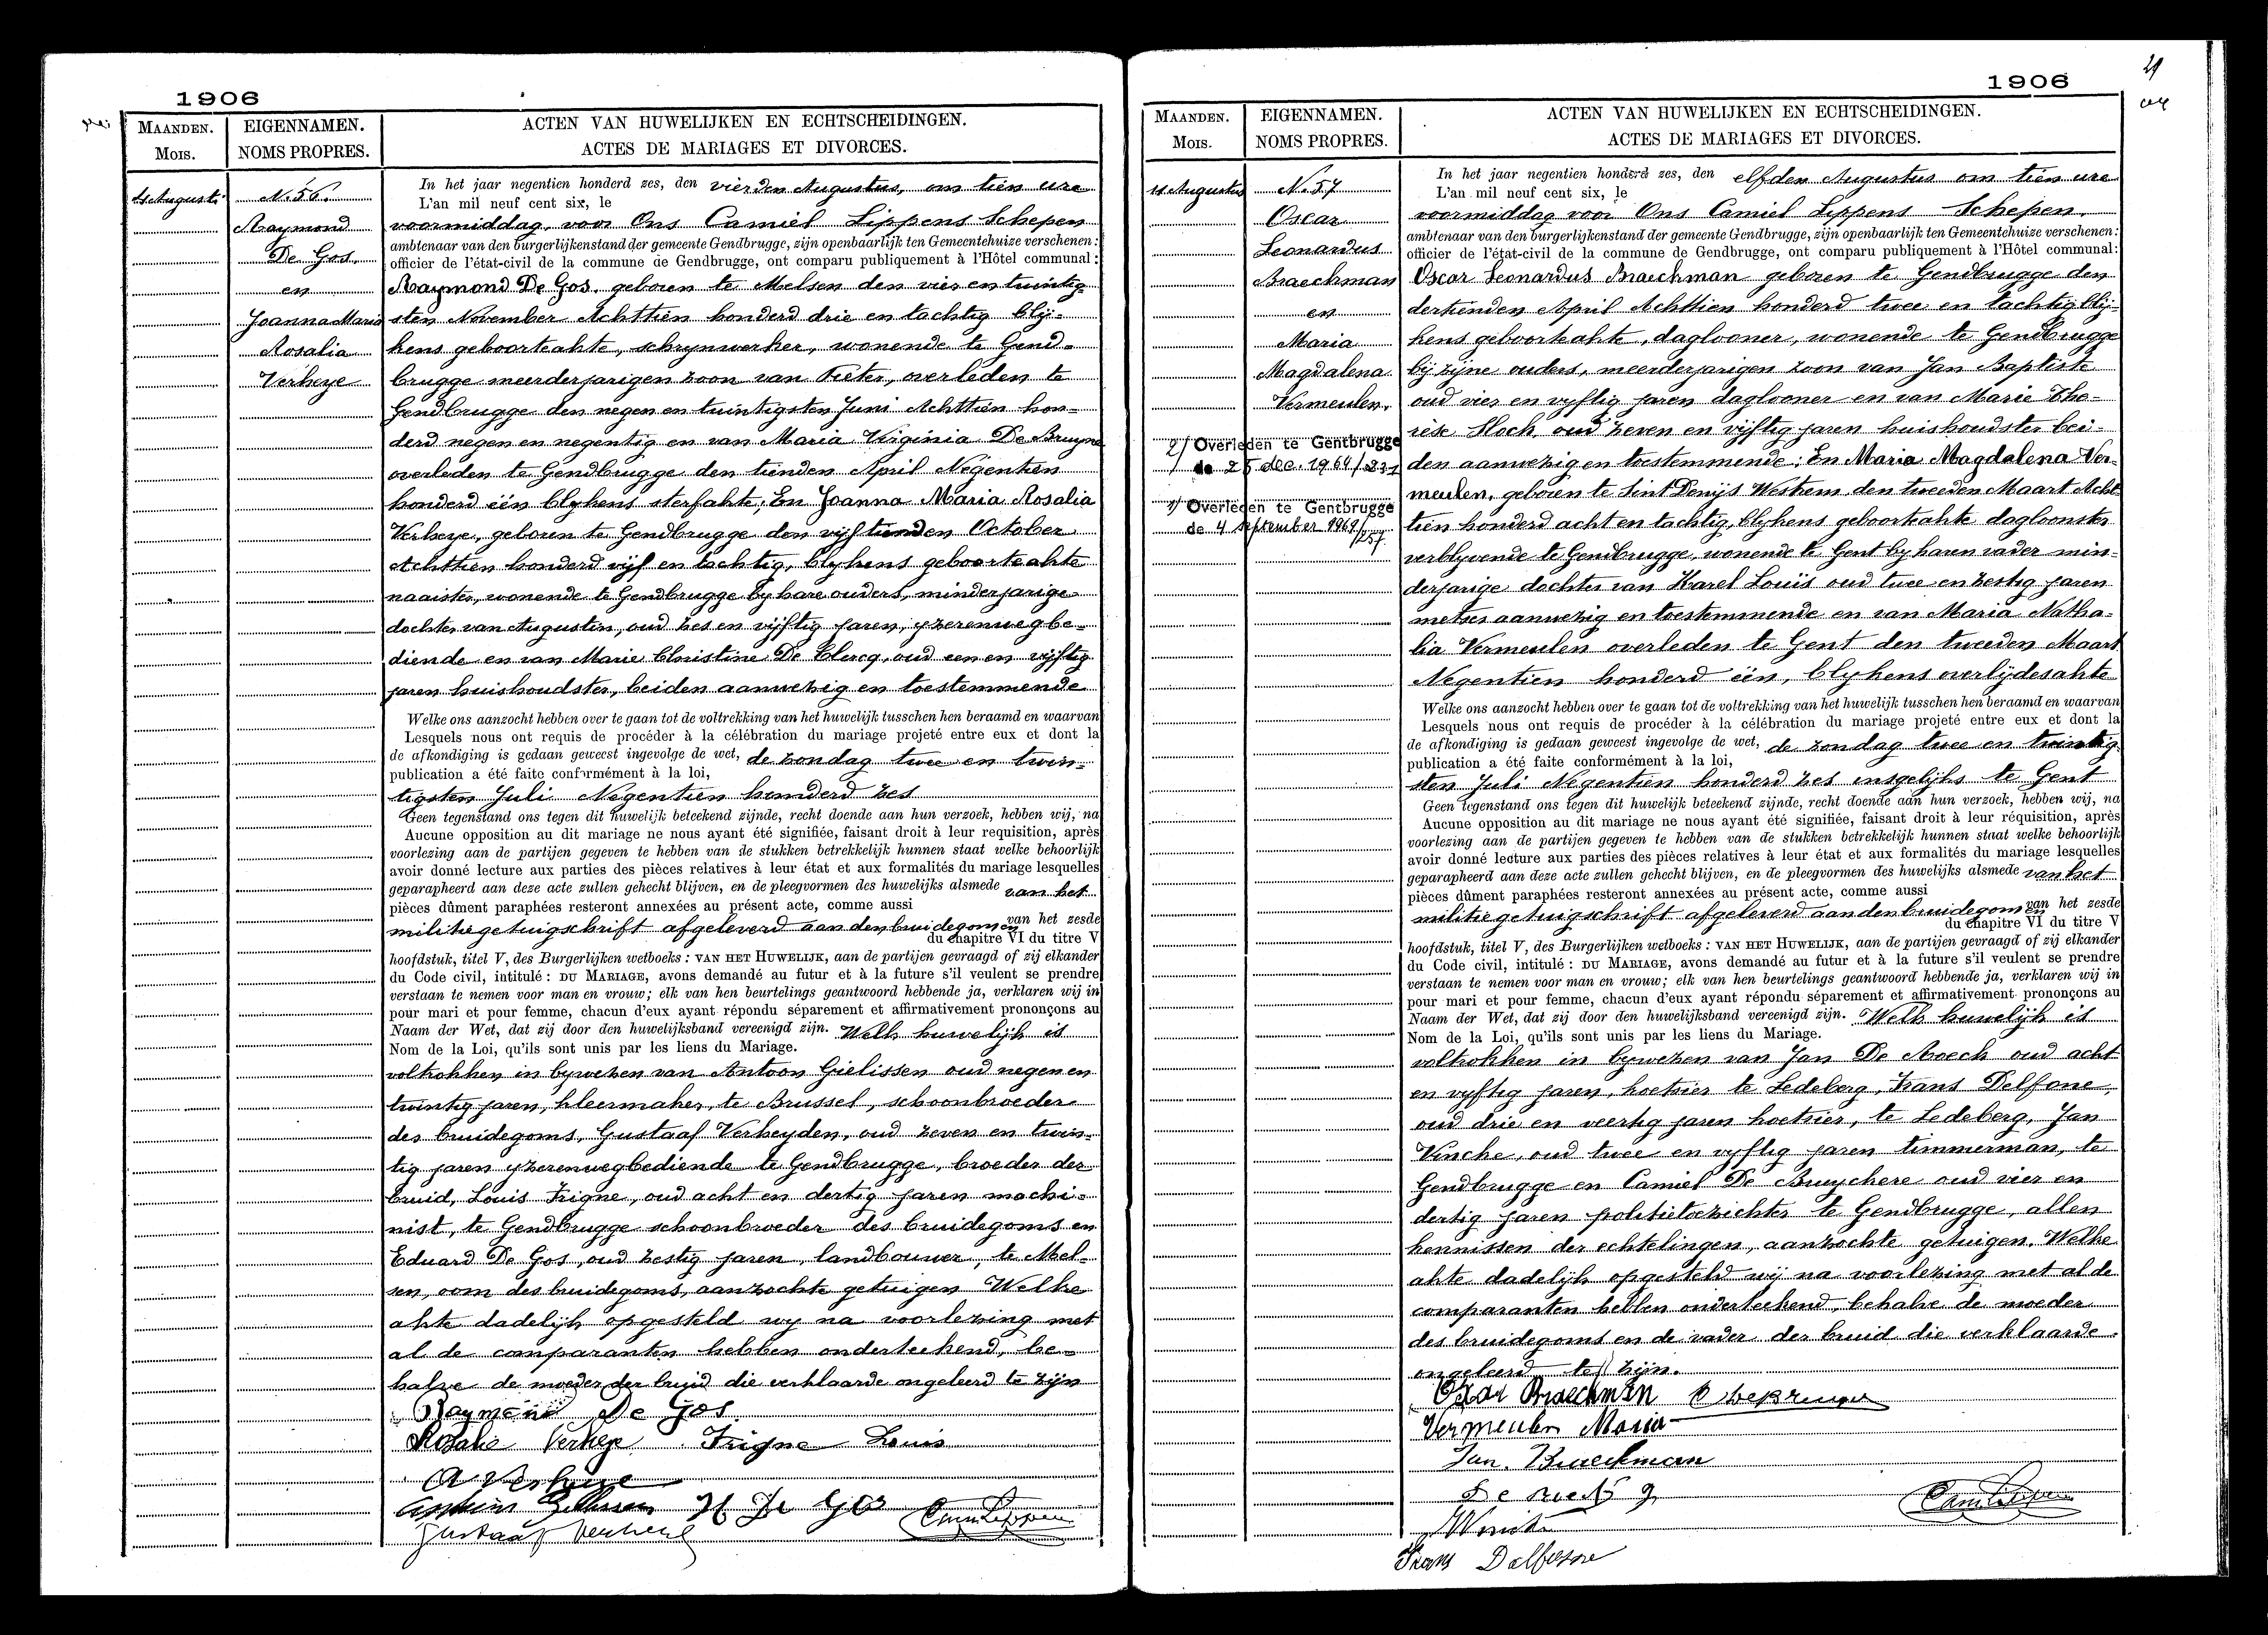 1906
MAANDEN.
Mois.
EIGENNAMEN.
NOMS PROPRES.
ACTEN VAN HUWELIJKEN EN ECHTSCHEIDINGEN.
ACTES DE MARIAGES ET DIVORCES.
4 Augusti
N. 56.
Raymond
De Gos.
en
Joanna Maria
Rosalia
Verheye
In het jaar negentien honderd zes, den vierden Augustus, om tien ure
L'an mil neuf cent six, le
voormiddag, voor Ons Camiel Lippens Schepen
ambtenaar van den burgerlijkenstand der gemeente Gendbrugge, zijn openbaarlijk ten Gemeentehuize verschenen:
officier de l'état-civil de la commune de Gendbrugge, ont comparu publiquement à l'Hôtel communal:
Raymond De Gos. geboren te Melsen den vier en twintig-
sten November Achttien honderd drie en tachtig blij-
kens geboorteakte, schrynwerker, wonende te Gend-
brugge meerderjarigen zoon van Pieter, overleden te
Gendbrugge den negen en twintigsten Juni Achttien hon-
derd negen en negentig en van Maria Virginia De Bruyne
overleden te Gendbrugge den tienden April Negentien
honderd één blykens sterfakte; En Joanna Maria Rosalia
Verheye, geboren te Gendbrugge den vijftienden October
Achttien honderd vijf en tachtig, blykens geboorteakte
naaister, wonende te Gendbrugge by hare ouders, minderjarige
dochter van Augustin, oud zes en vijftig jaren, yzerenwegbe-
diende en van Marie Christine De Clercq, oud een en vijftig
jaren huishoudster, beiden aanwezig en toestemmende
Welke ons aanzocht hebben over te gaan tot de voltrekking van het huwelijk tusschen hen beraamd en waarvan
Lesquels nous ont requis de procéder à la célébration du mariage projeté entre eux et dont la
de afkondiging is gedaan geweest ingevolge de wet, de zondag twee en twin-
publication a été faite conformément à la loi,
tigsten Juli Negentien honderd zes
Geen tegenstand ons tegen dit huwelijk beteekend zijnde, recht doende aan hun verzoek, hebben wij, na
Aucune opposition au dit mariage ne nous ayant été signifiée, faisant droit à leur requisition, après
voorlezing aan de partijen gegeven te hebben van de stukken betrekkelijk hunnen staat welke behoorlijk
avoir donné lecture aux parties des pièces relatives à leur état et aux formalités du mariage lesquelles
geparapheerd aan deze acte zullen gehecht blijven, en de pleegvormen des huwelijks alsmede van het
pièces dûment paraphées resteront annexées au présent acte, comme aussi
militiegetuigschrift afgeleverd aan den bruidegom en van het zesde
du chapitre VI du titre V
hoofdstuk, titel V, des Burgerlijken wetboeks: VAN HET HUWELIJK, aan de partijen gevraagd of zij elkander
du Code civil, intitulé: DU MARIAGE, avons demandé au futur et à la future s'il veulent se prendre
verstaan te nemen voor man en vrouw; elk van hen beurtelings geantwoord hebbende ja, verklaren wij in
pour mari et pour femme, chacun d'eux ayant répondu séparement et affirmativement prononçons au
Naam der Wet, dat zij door den huwelijksband vereenigd zijn. Welk huwelijk is
Nom de la Loi, qu'ils sont unis par les liens du Mariage.
voltrokken in bywezen van Antoon Gielissen oud negen en
twintig jaren, kleermaker, te Brussel, schoonbroeder
des bruidegoms, Gustaaf Verheyden, oud zeven en twin-
tig jaren yzerenwegbediende te Gendbrugge, broeder der
bruid, Louis Trigne, oud acht en dertig jaren machi-
nist, te Gendbrugge schoonbroeder des bruidegoms en
Eduard De Gos, oud zestig jaren, landbouwer, te Mel-
sen, oom des bruidegoms, aanzochte getuigen Welke
akte dadelijk opgesteld wy na voorlezing met
al de comparanten hebben onderteekend, be-
halve de moeder der bruid die verklaarde ongeleerd te zijn
Raymond De Gos
Rosalie Verheye Trigne Louis
A Verheye
De Gos
Gustaaf Verheye
1906
29
MAANDEN.
Mois.
EIGENNAMEN.
NOMS PROPRES.
ACTEN VAN HUWELIJKEN EN ECHTSCHEIDINGEN.
ACTES DE MARIAGES ET DIVORCES.
11 Augustus
N. 57
Oscar
Leonardus
Braechman
en
Maria
Magdalena
Vermeulen.
2/ Overleden te Gentbrugge
de 25 dec. 1964/231
1/ Overleden te Gentbrugge
de 4 september 1969/
/257
In het jaar negentien honderd zes, den elfden Augustus om tien ure
L'an mil neuf cent six, le
voormiddag voor Ons Camiel Lippens Schepen.
ambtenaar van den burgerlijkenstand der gemeente Gendbrugge, zijn openbaarlijk ten Gemeentehuize verschenen:
officier de l'état-civil de la commune de Gendbrugge, ont comparu publiquement à l'Hôtel communal:
Oscar Leonardus Braechman geboren te Gendbrugge den
dertienden April Achttien honderd twee en tachtig blij-
kens geboorteakte, dagloner, wonende te Gendbrugge
bij zijne ouders, meerderjarigen zoon van Jan Baptiste
oud vier en vyftig jaren daglooner en van Marie The-
rese Hoch, oud zeven en vijftig jaren huishoudster bei-
den aanwezig en toestemmende; En Maria Magdalena Ver-
meulen, geboren te Sint Denijs Westrem den tweeden Maart Acht-
tien honderd acht en tachtig, blykens geboorteakte dagloonster
verblyvende te Gendbrugge, wonende te Gent by haren vader min-
derjarige dochter van Karel Louis oud twee en zestig jaren
metser aanwezig en toestemmende en van Maria Natha-
lia Vermeulen overleden te Gent den tweeden Maart
Negentien honderd één, blykens overlijdesakte
Welke ons aanzocht hebben over te gaan tot de voltrekking van het huwelijk tusschen hen beraamd en waarvan
Lesquels nous ont requis de procéder à la célébration du mariage projeté entre eux et dont la
de afkondiging is gedaan geweest ingevolge de wet, de zondag twee en twintig-
publication a été faite conformément à la loi,
sten Juli Negentien honderd zes insgelijks te Gent
Geen tegenstand ons tegen dit huwelijk beteekend zijnde, recht doende aan hun verzoek, hebben wij, na
Aucune opposition au dit mariage ne nous ayant été signifiée, faisant droit à leur réquisition, après
voorlezing aan de partijen gegeven te hebben van de stukken betrekkelijk hunnen staat welke behoorlijk
avoir donné lecture aux parties des pièces relatives à leur état et aux formalités du mariage lesquelles
geparapheerd aan deze acte zullen gehecht blijven, en de pleegvormen des huwelijks alsmede van het
pièces dûment paraphées resteront annexées au présent acte, comme aussi
militiegetuigschrift afgeleverd aan den bruidegom en van het zesde
du chapitre VI du titre V
hoofdstuk, titel V, des Burgerlijken wetboeks: VAN HET HUWELIJK, aan de partijen gevraagd of zij elkander
du Code civil, intitulé: DU MARIAGE, avons demandé au futur et à la future s'il veulent se prendre
verstaan te nemen voor man en vrouw; elk van hen beurtelings geantwoord hebbende ja, verklaren wij in
pour mari et pour femme, chacun d'eux ayant répondu séparement et affirmativement prononçons au
Naam der Wet, dat zij door den huwelijksband vereenigd zijn. Welk huwelijk is
Nom de la Loi, qu'ils sont unis par les liens du Mariage.
voltrokken in bywezen van Jan De Roeck oud acht
en vyftig jaren, koetsier te Ledeberg, Frans Delfone,
oud drie en veertig jaren koetsier, te Ledeberg, Jan
Vinche, oud twee en vyftig jaren timmerman, te
Gendbrugge en Camiel De Bruyckere oud vier en
dertig jaren politietoezichter te Gendbrugge, allen
kennissen der echtelingen, aanzochte getuigen. Welke
akte dadelijk opgesteld wij na voorlezing met al de
comparanten hebben onderteekend, behalve de moeder
des bruidegoms en de vader der bruid die verklaarde
ongeleerd te zijn.
Oscar Braeckman
Vermeulen Maria
Jan. Braeckman
Frans Delfosse